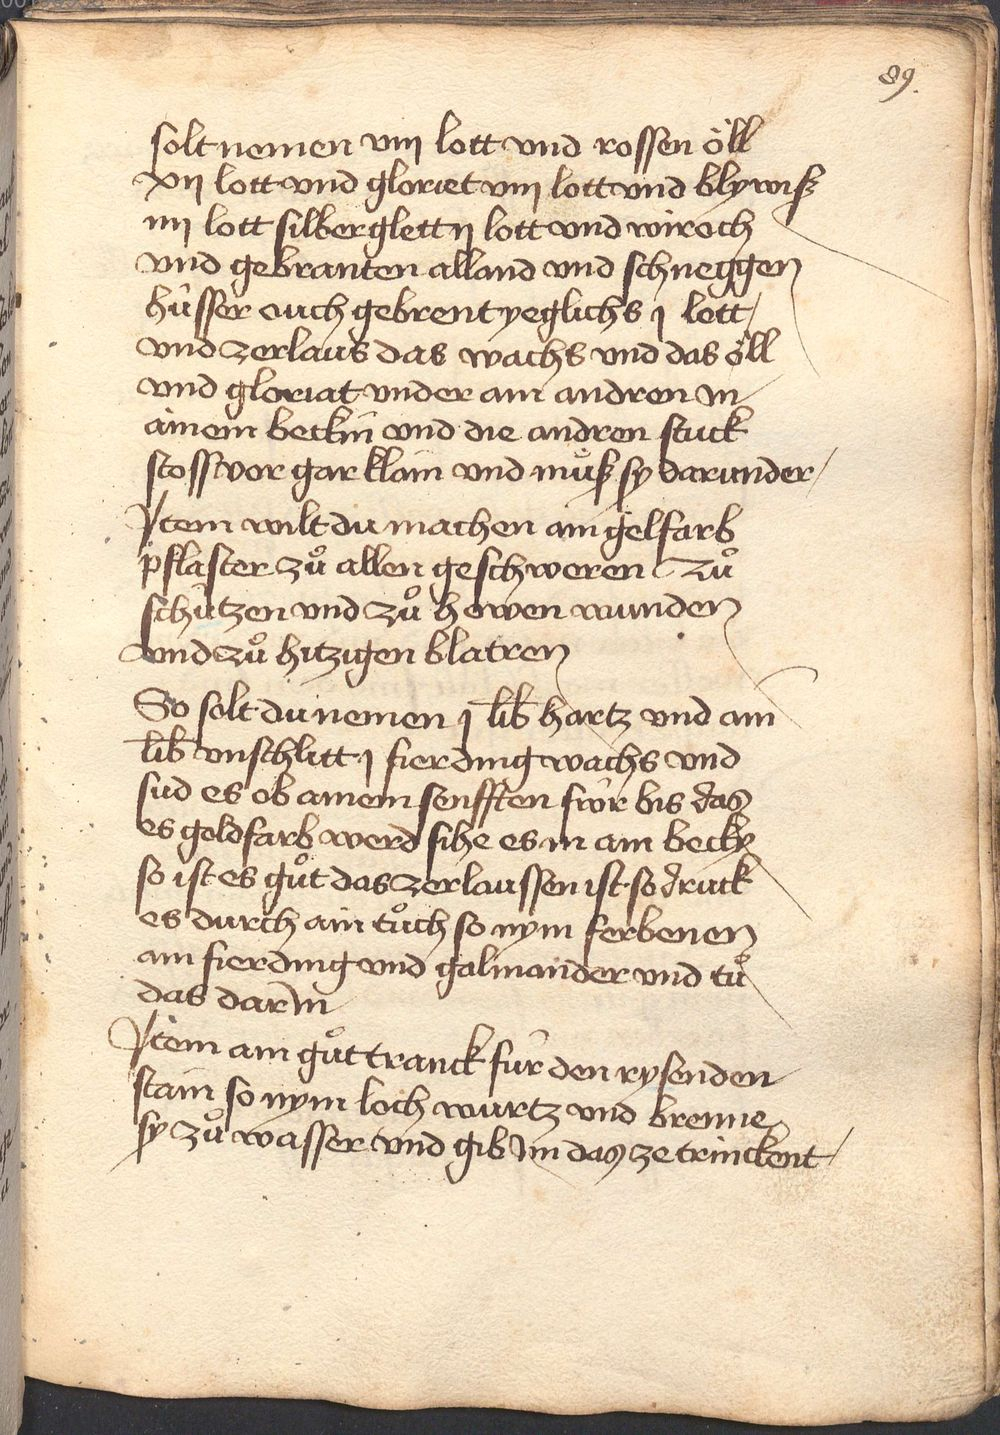 89.
solt nemen viij lott vnd rossen öll
xij lott vnd gloriet viij lott vnd blywiß
iiij lott silberglett ij lott vnd wiroch
vnd gebranten alland vnd schneggen
hüsser ouch gebrent yeglichs j lott
vnd zerlaus das wachs vnd das öll
vnd gloriat vnder ain andren in
ainem beckin vnd die andren stuck
stoss vor gar klain vnd müß sy darunder
Item wilt du machen ain gelfarb
pflaster zů allen geschweren zů
schützen vnd zů howen wunden
vnd zů hitzigen blatren
So solt du nemen j lib hartz vnd ain
lib vnschlitt j fierdung wachs vnd
süd es ob ainem senfften für bis das
es goldfarb werd sihe es in ain becky
so ist es gůt das zerlaussen ist so druck
es durch ain tůch so nym ferbenen
ain fierdung vnd galmander vnd tů
das darin
Item ain gůt tranck für den rysenden
stain so nym loch wurtz vnd brenne
sy zů wasser vnd gib im das ze trinckent